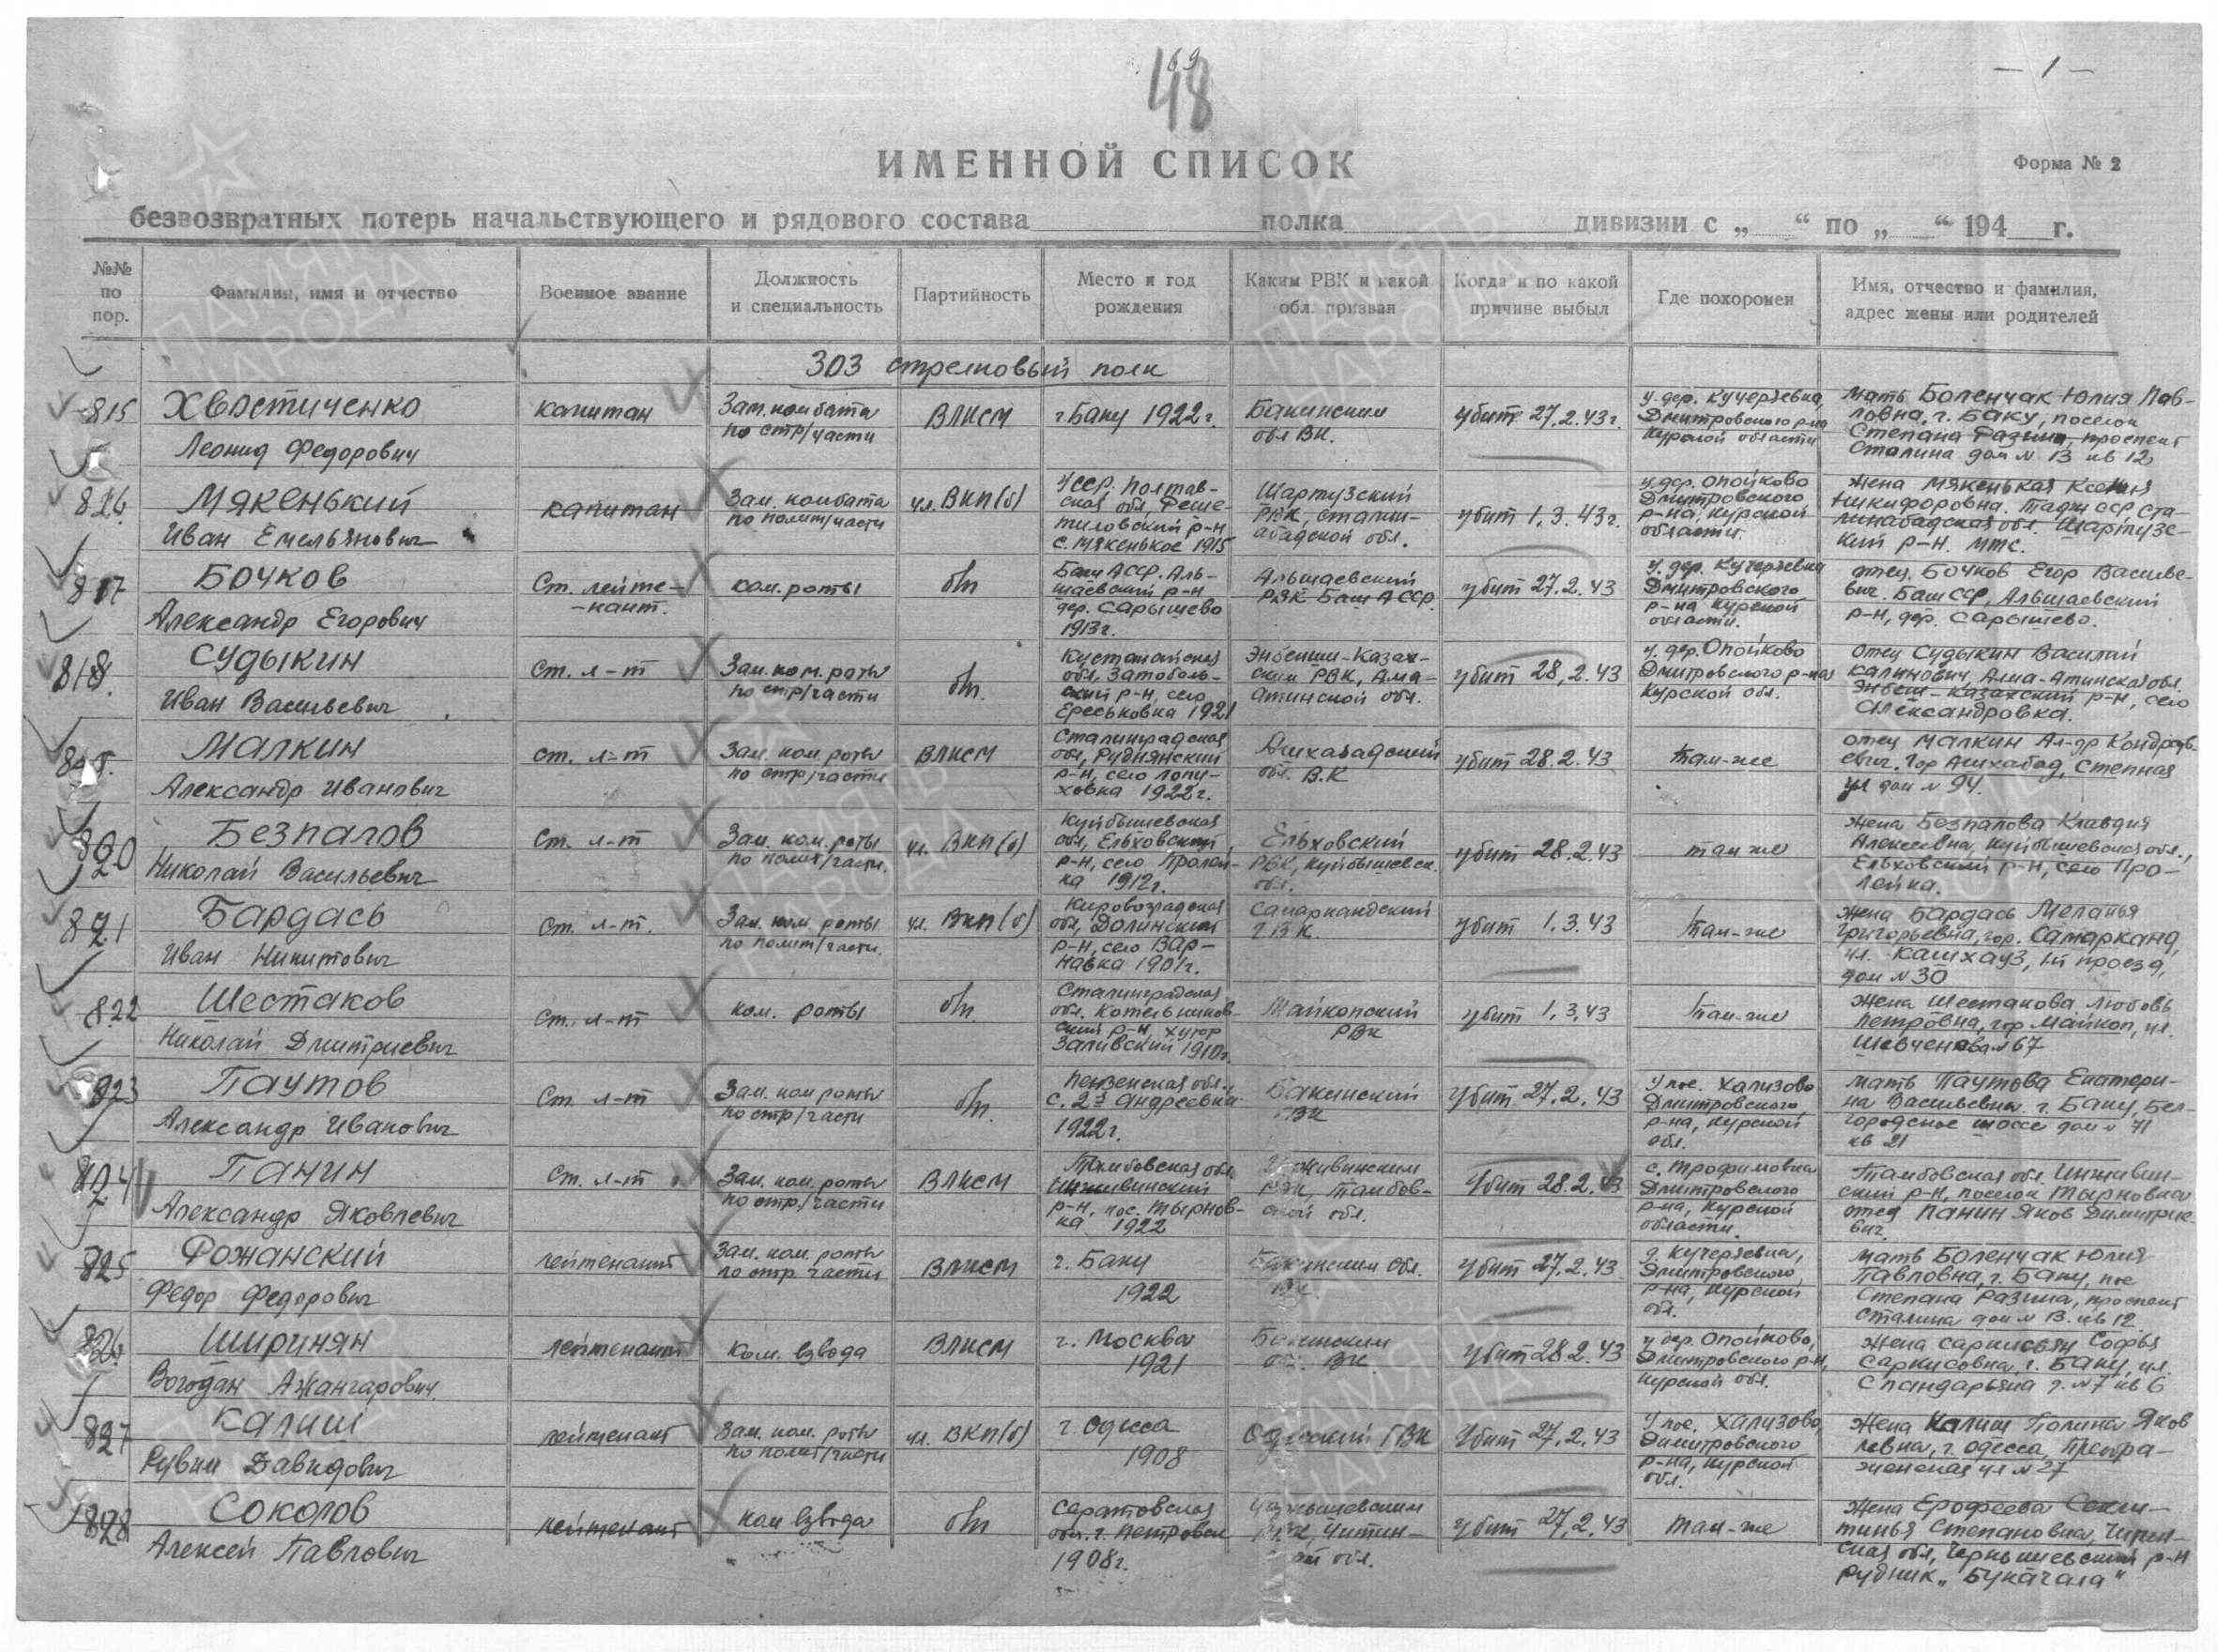 69
48
— 1 —
ИМЕННОЙ СПИСОК
Форма № 2
безвозвратных потерь начальствующего и рядового состава полка дивизии с „ “ по „ “ 194 г.
№№ по пор.
Фамилия, имя и отчество
Военное звание
Должность и специальность
Партийность
Место и год рождения
Каким РВК и какой обл. призван
Когда и по какой причине выбыл
Где похоронен
Имя, отчество и фамилия, адрес жены или родителей
303 стрелковый полк
815 Хвостиченко Леонид Федорович
капитан
Зам. комбата по стр/части
ВЛКСМ
г Баку 1922 г.
Бакинским обл ВК.
убит 27.2.43 г.
у. дер. Кучеряевка Дмитровского р-на Курской области
мать Боленчак Юлия Павловна, г. Баку, поселок Степана Разина, проспект Сталина дом № 13 кв 12
816. Мякенький Иван Емельянович
капитан
Зам. комбата по полит/части
чл. ВКП(б)
УССР. Полтавская обл, Решетиловский р-н с. Мякенькое 1915
Шартузский РВК, Сталинабадской обл.
убит 1.3.43 г.
у дер. Опойково Дмитровского р-на, Курской области.
жена Мякенькая Ксения Никифоровна. Тадж ССР Сталинабадская обл. Шартузский р-н. МТС.
817 Бочков Александр Егорович
Ст. лейте- -нант.
ком. роты
б/п
Баш АССР. Альшаевский р-н дер. Сарышево 1913 г.
Альшаевский РВК Баш АССР.
убит 27.2.43
у. дер. Кучеряевка Дмитровского р-на Курской области.
отец. Бочков Егор Василье- вич. Баш ССР, Альшаевский р-н, дер. Сарышево.
818. Судыкин Иван Васильевич
Ст. л-т
Зам. ком. роты по стр/части
б/п.
Кустанайская обл, Затобольский р-н, село Ереськовка 1921
Энбекши-Казахским РВК, Ама- Атинской обл.
убит 28.2.43
у. дер. Опойково Дмитровского р-на Курской обл.
отец Судыкин Василий Калинович, Алма-Атинская обл. Энбеш-Казахский р-н, село Александровка.
Малкин Александр Иванович
ст. л-т
Зам. ком роты по стр/части
ВЛКСМ
Сталинградская обл, Руднянский р-н, село Лопуховка 1922 г.
Ашхабадский обл. В.К
убит 28.2.43
Там-же
отец Малкин Ал-др гор Ашхабад, Степная ул дом № 94.
820 Безпалов Николай Васильевич
Ст. л-т
Зам. ком. роты по полит/части.
чл. ВКП(б)
Куйбышевская обл, Ельховский р-н, село Пролейка 1912 г.
Ельховский РВК, Куйбышевск. обл.
убит 28.2.43
там же
жена Безпалова Клавдия Алексеевна, Куйбышевская обл., Ельховский р-н, село Про- лейка.
821 Бардась Иван Никитович
Ст. л-т.
Зам. ком роты по полит/части.
чл. ВКП(б)
Кировоградская обл, Долинский р-н, село Варнавка 1901 г.
Самаркандский ГВК.
убит 1.3.43
Там-же
жена Бардась Меланья Григорьевна, гор. Самарканд, ул. Кашхауз, 1й проезд, дом № 30
822 Шестаков Николай Дмитриевич
Ст. л-т
ком. роты
б/п.
Сталинградская обл. Котельниковский р-н, хутор Заливский 1910 г.
Майкопский РВК
убит 1.3.43
Там-же
жена Шестакова Любовь Петровна, гор Майкоп, ул. Шевченко № 67
823 Паутов Александр Иванович
Ст. л-т
Зам. ком роты по стр/части
б/п.
Пензенская обл. с. 2я Андреевка 1922 г.
Бакинский ГВК
убит 27.2.43
У пос. Хализово Дмитровского р-на, Курской обл.
мать Паутова Екатерина Васильевна г. Баку, Белгородское шоссе дом № 71 кв 21
824 Панин Александр Яковлевич
Ст. л-т
Зам. ком. роты по стр./части
ВЛКСМ
Тамбовская обл Инжавинский р-н, пос. Тырновка 1922
Инжавинским РВК, Тамбовской обл.
Убит 28.2.43
с. Трофимовка Дмитровского р-на, Курской области.
Тамбовская обл. Инжавинский р-н, поселок Тырновка отец Панин Яков Димитриевич
825 Рожанский Федор Федорович
лейтенант
Зам. ком. роты по стр части
ВЛКСМ
г. Баку 1922
Бакинским обл. ВК.
Убит 27.2.43
д. Кучеряевка, Дмитровского р-на, Курской обл.
мать Боленчак Юлия Павловна, г. Баку, пос Степана Разина, проспект Сталина дом № 13. кв 12
826 Ширинян Вогодан Ажангарович
лейтенант
Ком. взвода
ВЛКСМ
г. Москва 1921
Бакинским обл. ВК
Убит 28.2.43
у дер. Опойково, Дмитровского р-н, Курской обл.
жена Саркисьян Софья Саркисовна, г. Баку, ул. Спандарьяна д. № 7 кв 6
827 Калиш Рувим Давидович
лейтенант
Зам. ком. роты по полит/части
чл. ВКП(б)
г Одесса 1908
Одесский ГВК
Убит 27.2.43
У пос. Хализово, Дмитровского р-на, Курской обл.
Жена Калиш Полина Яковлевна, г. Одесса, ул № 27
828 Соколов Алексей Павлович
лейтенант
ком взвода
б/п
Саратовская обл. г. Петровск 1908 г.
Чернышевским РВК, Читинской обл.
убит 27.2.43
там-же
жена Ерофеева Степановна, Читинская обл, Чернышевский р-н рудник „Букачача“
ПАМЯТЬ НАРОДА